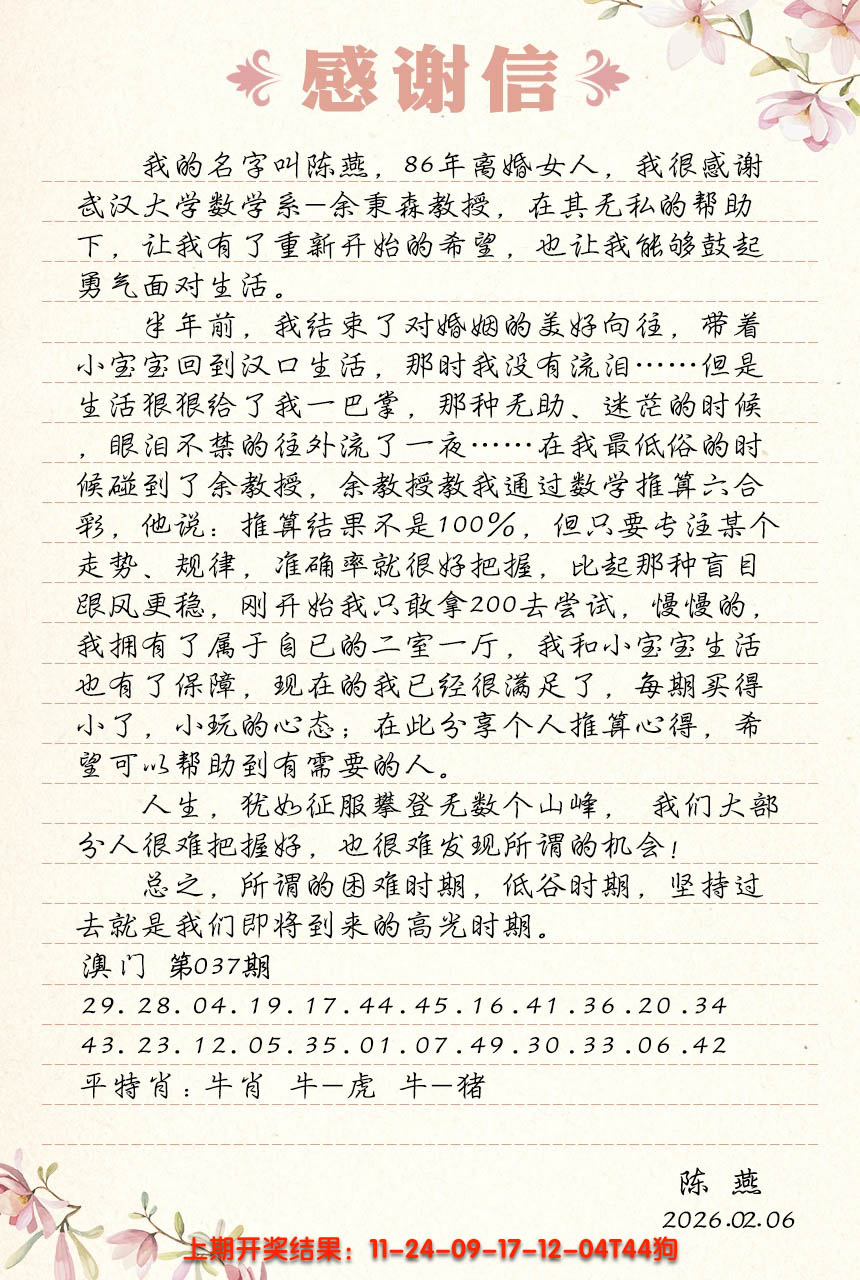 感谢信
我的名字叫陈燕，86年离婚女人，我很感谢
武汉大学数学系—余秉森教授，在其无私的帮助
下，让我有了重新开始的希望，也让我能够鼓起
勇气面对生活。
半年前，我结束了对婚姻的美好向往，带着
小宝宝回到汉口生活，那时我没有流泪……但是
生活狠狠给了我一巴掌，那种无助、迷茫的时候
，眼泪不禁的往外流了一夜……在我最低俗的时
候碰到了余教授，余教授教我通过数学推算六合
彩，他说：推算结果不是100%，但只要专注某个
走势、规律，准确率就很好把握，比起那种盲目
跟风更稳，刚开始我只敢拿200去尝试，慢慢的，
我拥有了属于自已的二室一厅，我和小宝宝生活
也有了保障，现在的我已经很满足了，每期买得
小了，小玩的心态；在此分享个人推算心得，希
望可以帮助到有需要的人。
人生，犹如征服攀登无数个山峰， 我们大部
分人很难把握好，也很难发现所谓的机会！
总之，所谓的困难时期，低谷时期，坚持过
去就是我们即将到来的高光时期。
澳门 第037期
29.28.04.19.17.44.45.16.41.36.20.34
43.23.12.05.35.01.07.49.30.33.06.42
平特肖：牛肖 牛—虎 牛—猪
陈 燕
2026.02.06
上期开奖结果：11-24-09-17-12-04T44狗